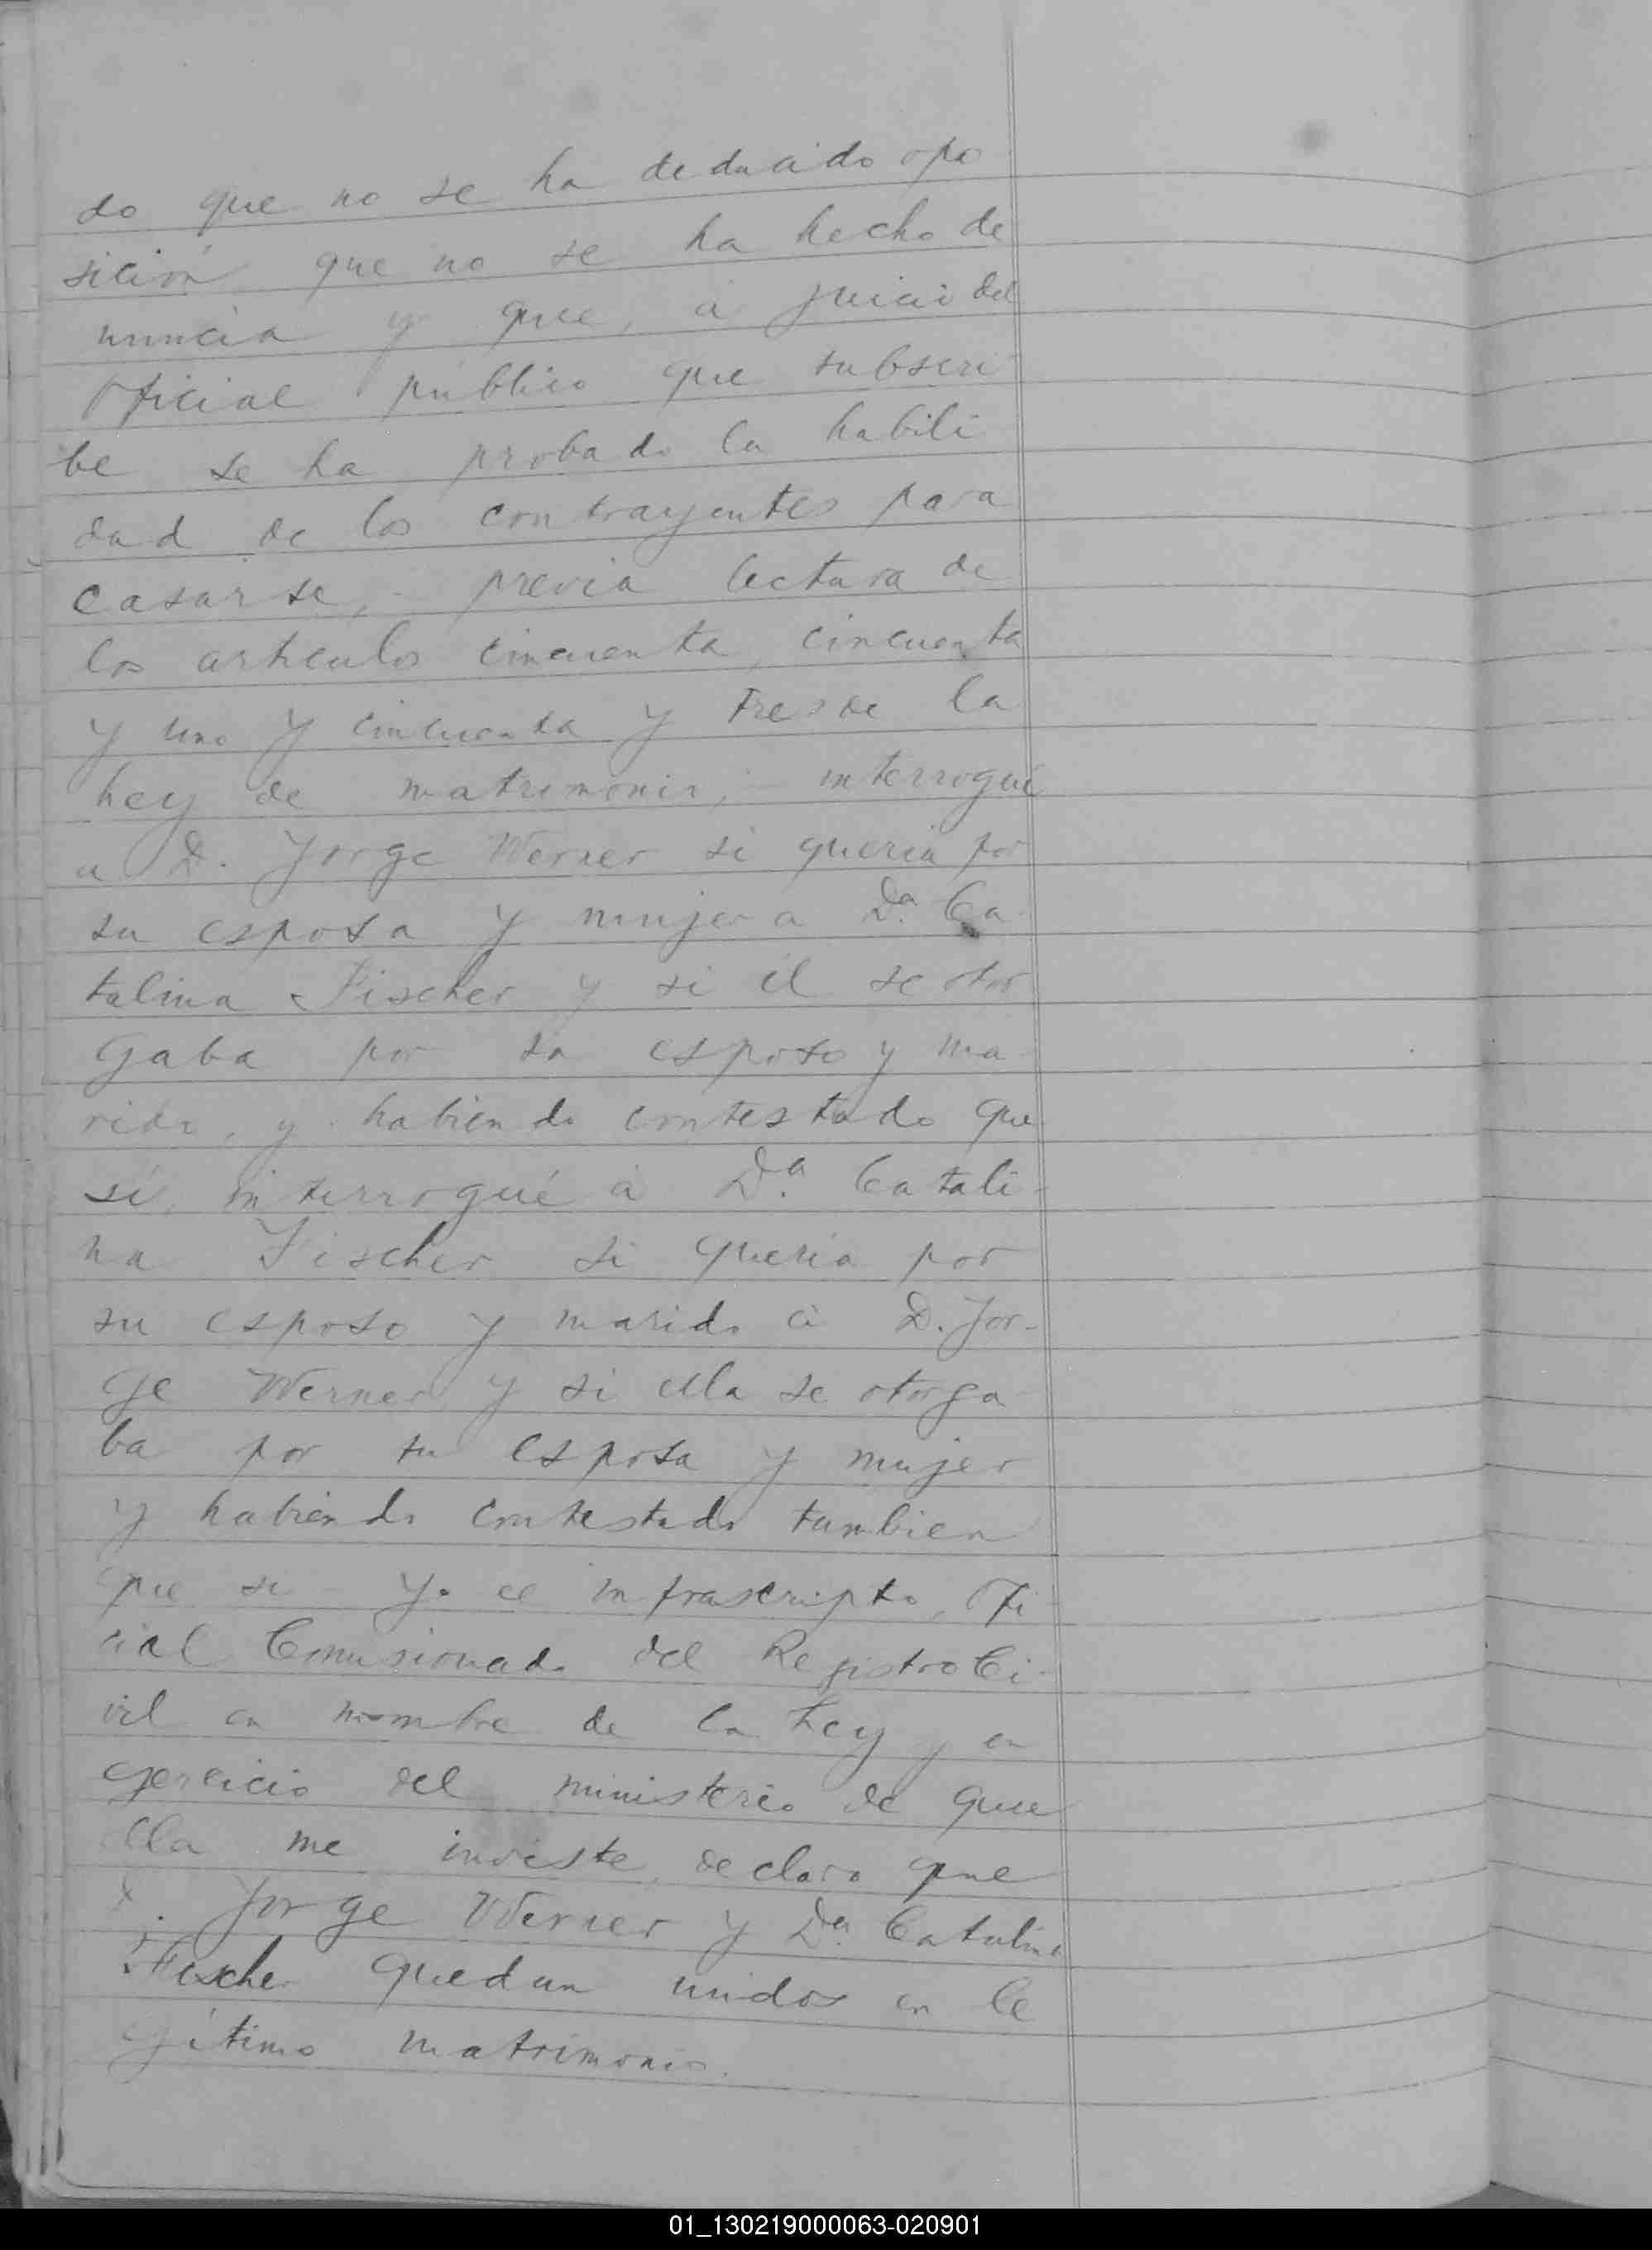 do que no se ha deducido opo
sición que no se ha hecho de
nuncia y que, á juicio del
Oficial público que subscri
be se ha probado la habili
dad de los contrayentes para
casarse, - previa lectura de
los artículos cincuenta, cincuenta
y uno y cincuenta y tres de la
Ley de matrimonio, - interrogué
a D. Jorge Werner si queria por
su esposa y mujer a Da. Ca
talina Fischer y si él se otor
gaba por su esposo y ma
rido, y habiendo contestado que
sí, interrogué á Da. Catali-
na Fischer si queria por
su esposo y marido á D. Jor-
ge Werner y si ella se otorga
ba por su esposa y mujer
y habiendo contestado tambien
que si - Yo el infrascripto, Ofi
cial Comisionado del Registro Ci-
vil en nombre de la Ley y en
ejercicio del ministerio de que
ella me inviste, declaro que
D. Jorge Werner y Da. Catalina
Fischer quedan unidos en le
gítimo matrimonio.
01_130219000063-020901